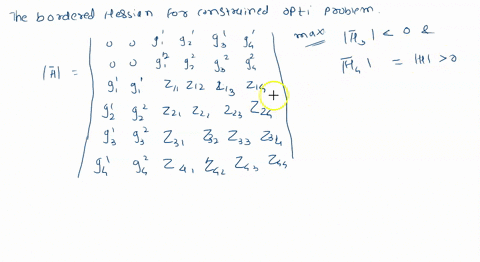 The bordered Hessian for constrained opti problem.
max |H̄₃| < 0 &
H̄₄| = |H| > 0
|H̄| =
0 0 g₁¹ g₂¹ g₃¹ g₄¹
0 0 g₁² g₂² g₃² g₄²
g₁¹ g₁¹ Z₁₁ Z₁₂ Z₁₃ Z₁₄
g₂¹ g₂² Z₂₁ Z₂₂ Z₂₃ Z₂₄
g₃¹ g₃² Z₃₁ Z₃₂ Z₃₃ Z₃₄
g₄¹ g₄² Z₄₁ Z₄₂ Z₄₃ Z₄₄